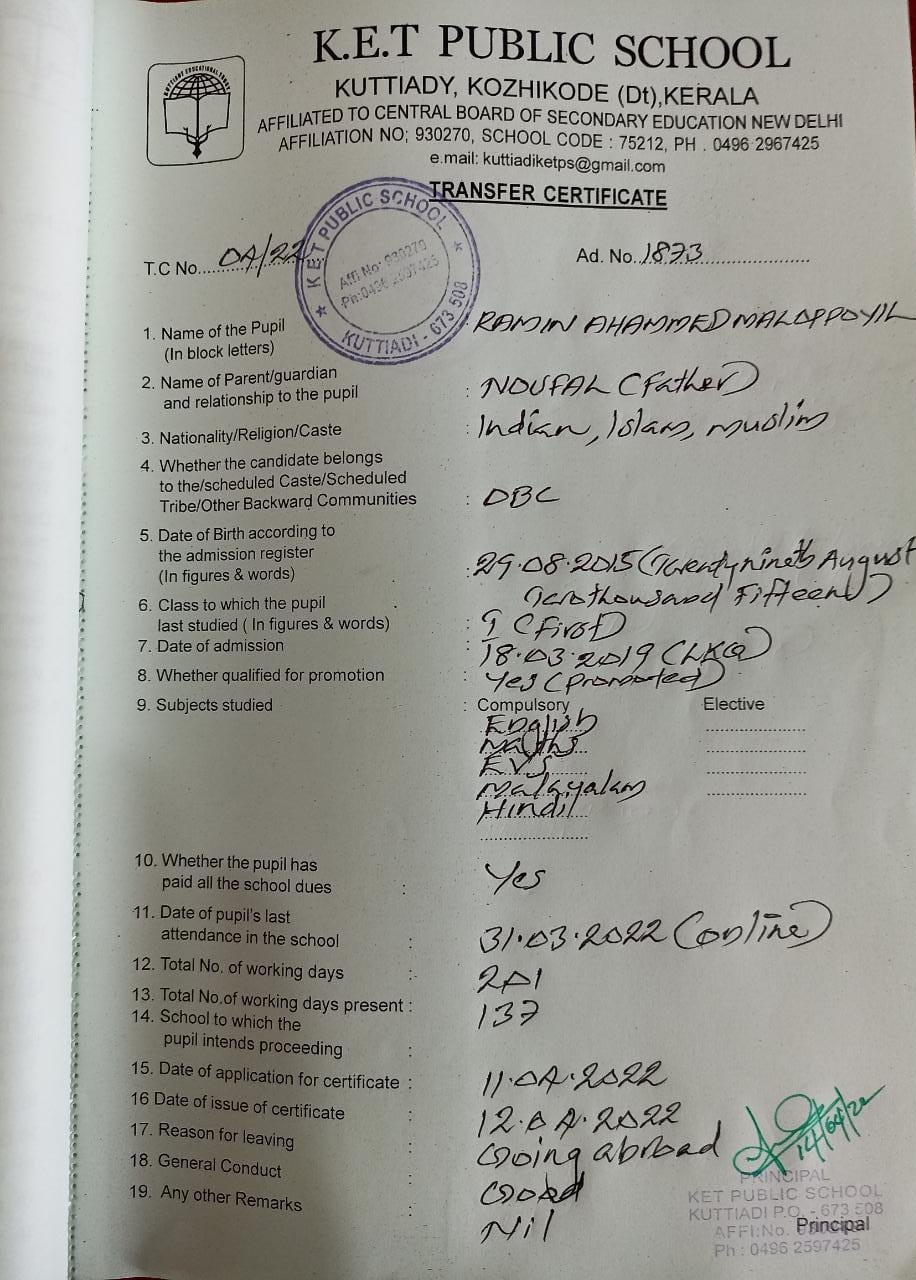 KUTTIADY EDUCATIONAL TRUST
K.E.T PUBLIC SCHOOL
KUTTIADY, KOZHIKODE (Dt),KERALA
AFFILIATED TO CENTRAL BOARD OF SECONDARY EDUCATION NEW DELHI
AFFILIATION NO; 930270, SCHOOL CODE : 75212, PH . 0496 2967425
e.mail: kuttiadiketps@gmail.com
TRANSFER CERTIFICATE
KET PUBLIC SCHOOL
Affi.No: 930270
Ph:0496 2597425
KUTTIADI - 673 508
T.C No. 04/22
Ad. No. 1873
1. Name of the Pupil : RAMIN AHAMMED MALOPPOYIL
(In block letters)
2. Name of Parent/guardian
and relationship to the pupil : NOUFAL (Father)
3. Nationality/Religion/Caste : Indian, Islam, Muslim
4. Whether the candidate belongs
to the/scheduled Caste/Scheduled
Tribe/Other Backward Communities : OBC
5. Date of Birth according to
the admission register : 29.08.2015 (Twentynineth August
(In figures & words) Twothousand Fifteen)
6. Class to which the pupil
last studied ( In figures & words) : I (First)
7. Date of admission : 18.03.2019 (LKG)
8. Whether qualified for promotion : Yes (Promoted)
9. Subjects studied : Compulsory Elective
English
Maths
EVS
Malayalam
Hindi
10. Whether the pupil has
paid all the school dues : Yes
11. Date of pupil's last
attendance in the school : 31.03.2022 (online)
12. Total No. of working days : 201
13. Total No.of working days present : 137
14. School to which the
pupil intends proceeding :
15. Date of application for certificate : 11.04.2022
16 Date of issue of certificate : 12.04.2022
17. Reason for leaving : Going abroad
18. General Conduct : Good
19. Any other Remarks : Nil
14/04/22
PRINCIPAL
KET PUBLIC SCHOOL
KUTTIADI P.O. - 673 508
AFFI:No.
Principal
Ph : 0496 2597425